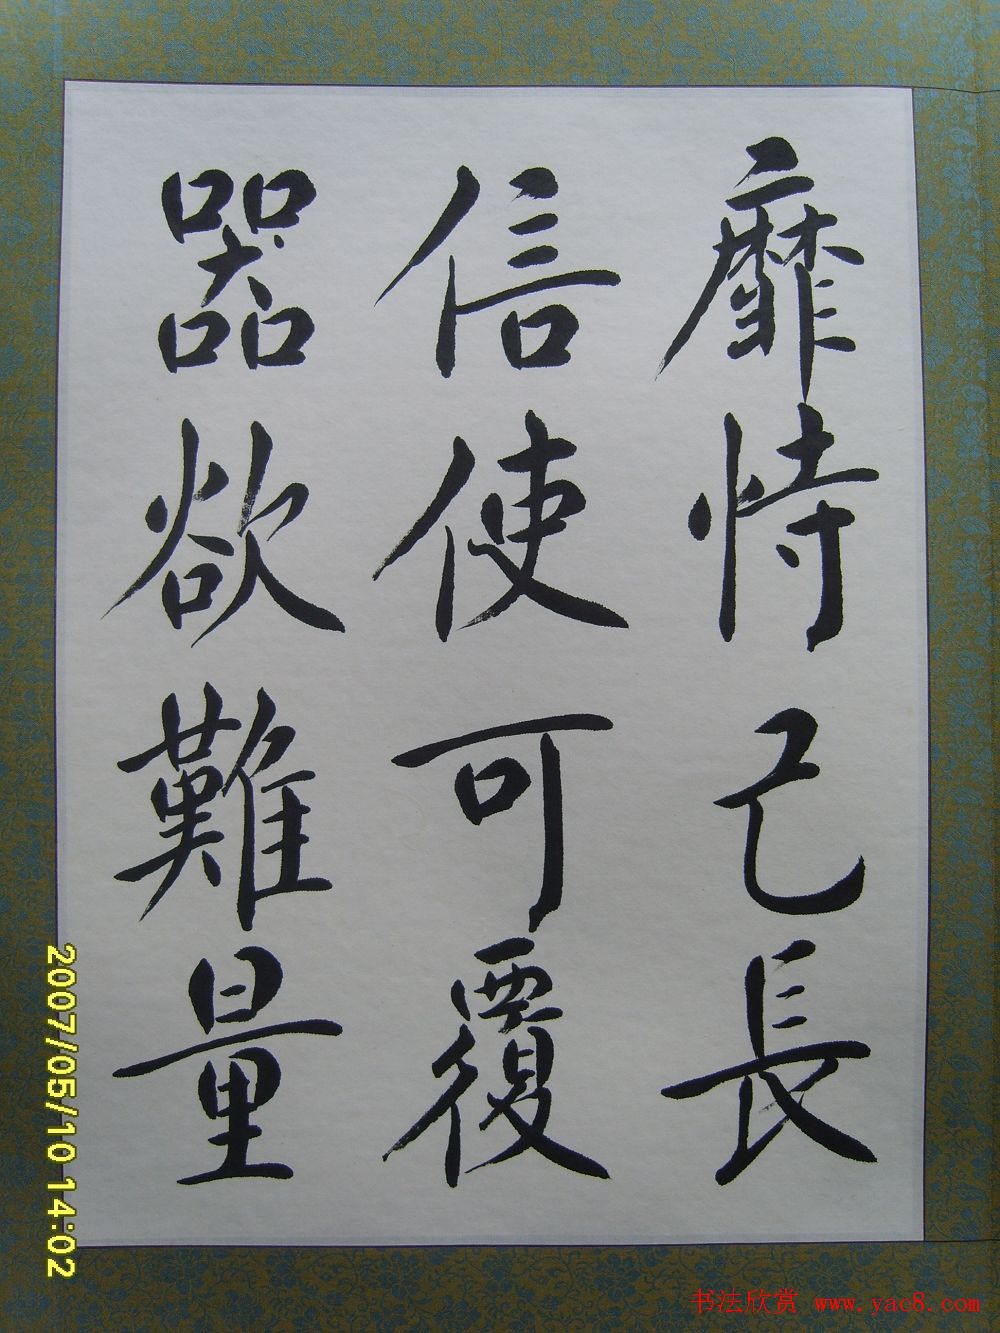 靡恃己長
信使可覆
器欲難量
2007/05/10 14:02
书法欣赏 www.yac8.com